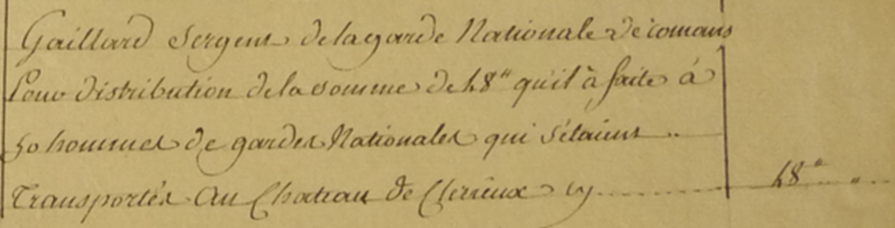 Gaillard Sergent de la garde Nationale de romans
Pour distribution de la somme de 48# qu'il à faite à
50 hommes de gardes Nationales qui s'étaient ..
Transportés au Chateau de Clerieux cy .......... 48# .. "